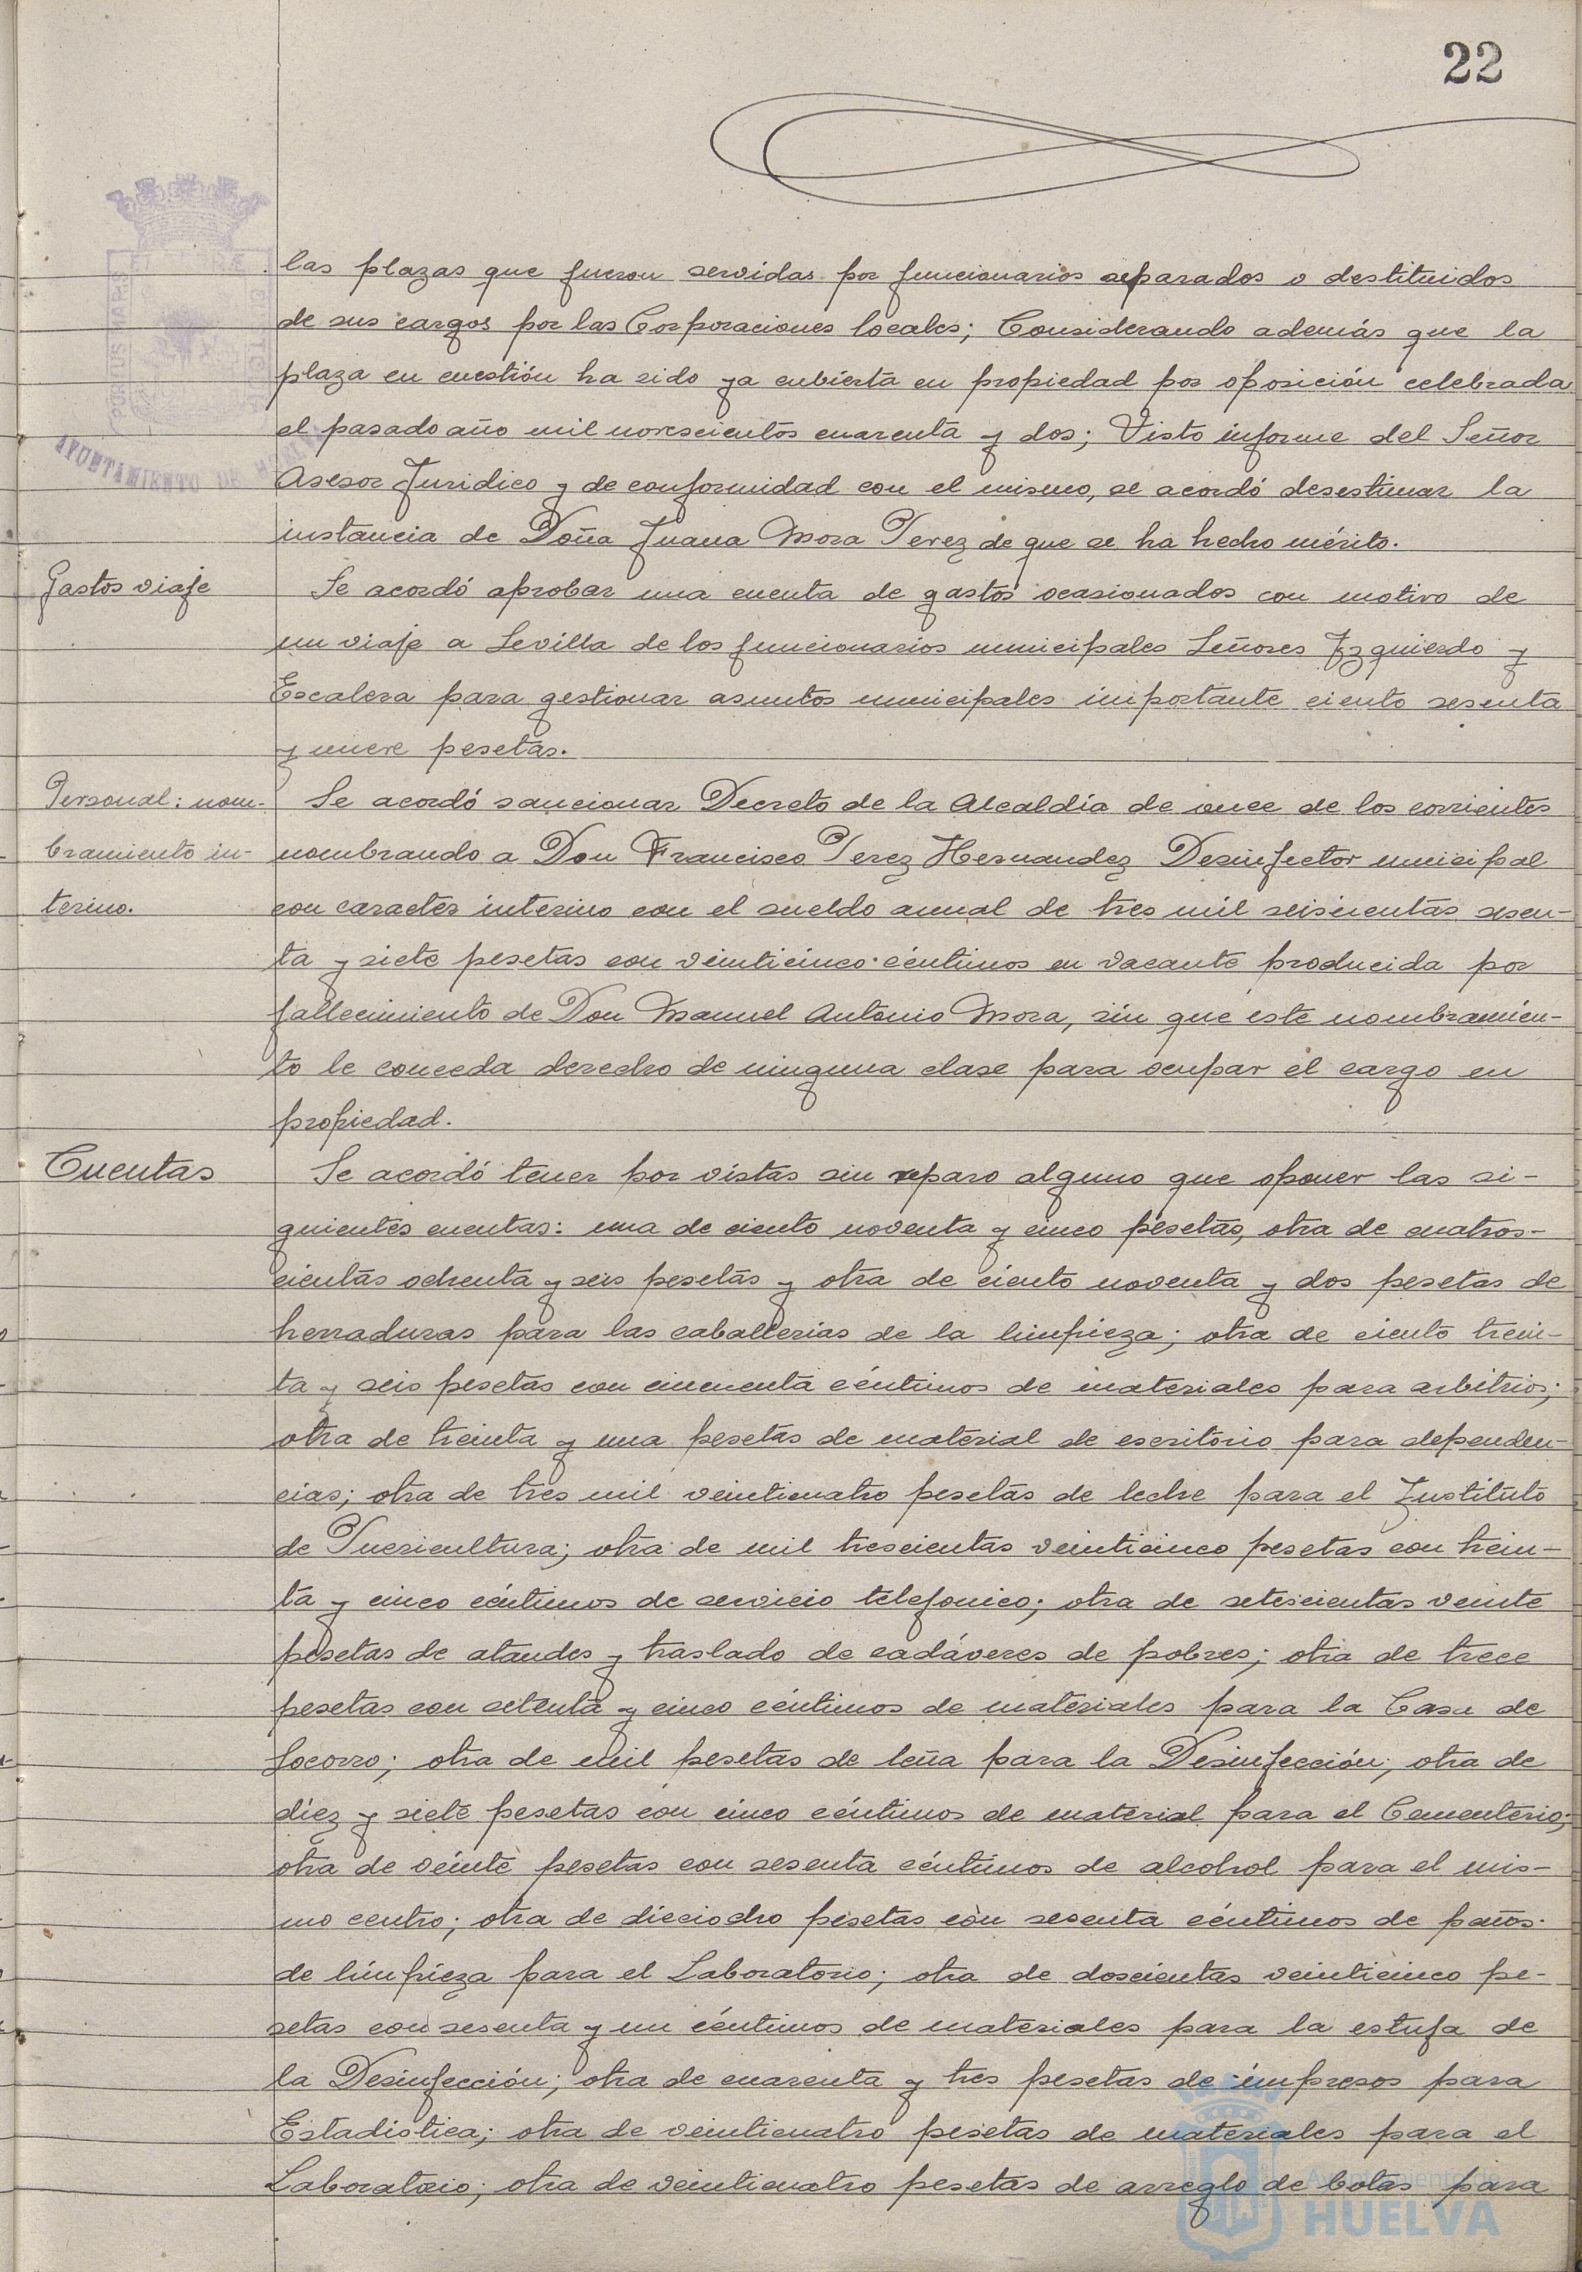 22
las plazas que fueron servidas por funcionarios separados o destituidos
de sus cargos por las Corporaciones locales; Considerando además que la
plaza en cuestión ha sido ya cubierta en propiedad por oposición celebrada
el pasado año mil novescientos cuarenta y dos; Visto informe del Señor
Asesor Juridico y de conformidad con el mismo, se acordó desestimar la
instancia de Doña Juana Mora Perez de que se ha hecho mérito.
Gastos viaje
Se acordó aprobar una cuenta de gastos ocasionados con motivo de
un viaje a Sevilla de los funcionarios municipales Señores Izquierdo y
Escalera para gestionar asuntos municipales importante ciento sesenta
y nueve pesetas.
Personal: nom-
bramiento in-
terino.
Se acordó sancionar Decreto de la Alcaldía de once de los corrientes
nombrando a Don Francisco Perez Hernandez Desinfector municipal
con caracter interino con el sueldo anual de tres mil seiscientas sesen-
ta y siete pesetas con veinticinco céntimos en vacante producida por
fallecimiento de Don Manuel Antonio Mora, sin que este nombramien-
to le conceda derecho de ninguna clase para ocupar el cargo en
propiedad.
Cuentas
Se acordó tener por vistas sin reparo alguno que oponer las si-
guientes cuentas: una de ciento noventa y cinco pesetas, otra de cuatros-
cientas ochenta y seis pesetas y otra de ciento noventa y dos pesetas de
herraduras para las caballerias de la limpieza; otra de ciento trein-
ta y seis pesetas con cincuenta céntimos de materiales para arbitrios;
otra de treinta y una pesetas de material de escritorio para dependen-
cias; otra de tres mil veinticuatro pesetas de leche para el Instituto
de Puericultura; otra de mil trescientas veinticinco pesetas con trein-
ta y cinco céntimos de servicio telefonico; otra de setescientas veinte
pesetas de ataudes y traslado de cadáveres de pobres; otra de trece
pesetas con setenta y cinco céntimos de materiales para la Casa de
Socorro; otra de mil pesetas de leña para la Desinfección; otra de
diez y siete pesetas con cinco céntimos de material para el Cementerio;
otra de veinte pesetas con sesenta céntimos de alcohol para el mis-
mo centro; otra de dieciocho pesetas con sesenta céntimos de paños
de limpieza para el Laboratorio; otra de doscientas veinticinco pe-
setas con sesenta y un céntimos de materiales para la estufa de
la Desinfección; otra de cuarenta y tres pesetas de impresos para
Estadistica; otra de veinticuatro pesetas de materiales para el
Laboratorio; otra de veinticuatro pesetas de arreglo de botas para
AYUNTAMIENTO DE HUELVA
PORTUS MARIS
Ayuntamiento de
HUELVA